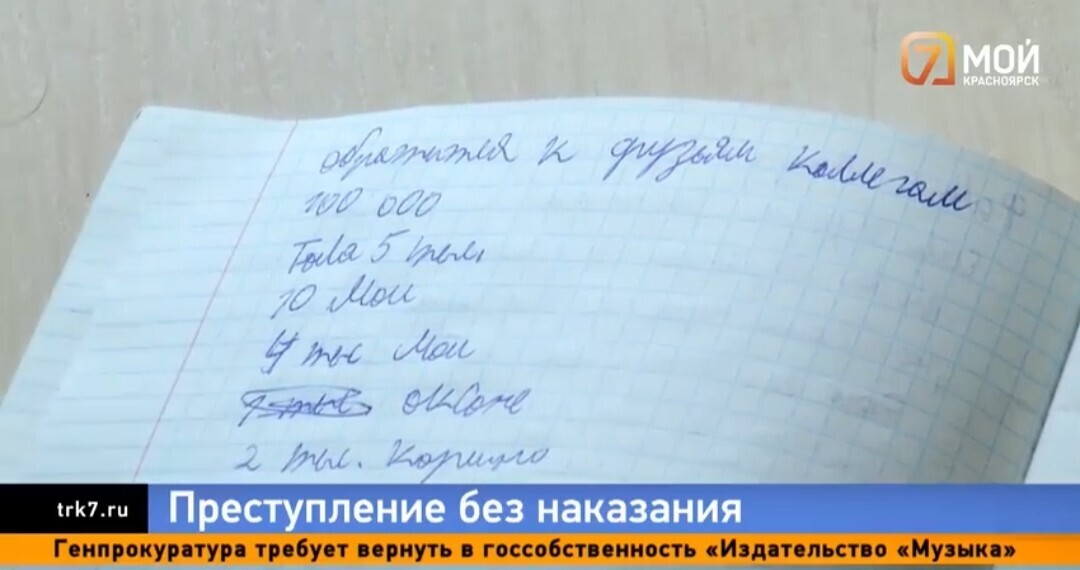 7 МОЙ
КРАСНОЯРСК
обратимся к друзьям коллегам
100 000
5 тыс.
10 Мои
4 тыс Мои
Оксане
2 тыс.
trk7.ru
Преступление без наказания
Генпрокуратура требует вернуть в госсобственность «Издательство «Музыка»